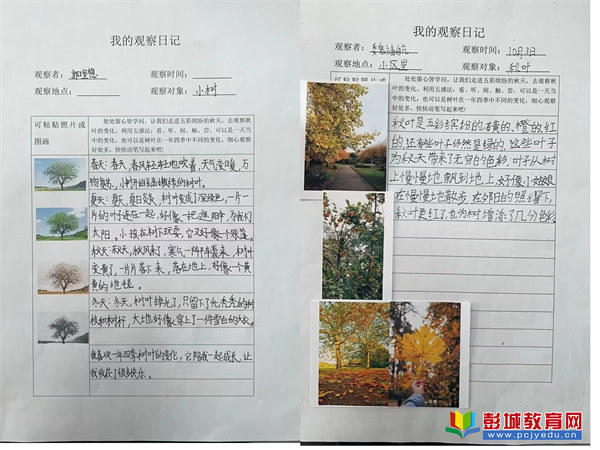 我的观察日记
观察者：
观察时间：
观察地点：
观察对象：小树
可粘贴照片或图画
处处留心皆学问，让我们走进五彩缤纷的秋天，去观察秋
叶的变化，利用五感法：看、听、闻、触、尝，可以是一天当
中的变化，也可以是树叶在一年四季中不同的变化，细心观察
好处多，快快动笔写起来吧！
春天：春天，春风轻轻地吹着，天气变暖，万
物复苏，小树开始长出嫩绿的树叶。
夏天：夏天，夏日炎炎，树叶变成了深绿色，一片一
片的叶子连在一起，好像一把遮阳伞，为我们
太阳。小孩在树下玩耍，它又好像一个
秋天：秋天，秋风来了，寒气一阵阵袭来，树叶
变黄了，一片片落下来，落在地上，好像一个黄
黄的地毯。
冬天：冬天，树叶掉光了，只留下了光秃秃的树
枝和树杆，大地好像穿上了一件雪白的大衣。
我喜欢一年四季树叶的变化，它陪我一起成长，让
我收获了很多快乐。
我的观察日记
观察者：
观察时间：10月3日
观察地点：小区里
观察对象：秋叶
可粘贴照片或
处处留心皆学问，让我们走进五彩缤纷的秋天，去观察秋
叶的变化，利用五感法：看、听、闻、触、尝，可以是一天当
中的变化，也可以是树叶在一年四季中不同的变化，细心观察
好处多，快快动笔写起来吧！
秋叶是五彩缤纷的，黄的、橙的、红
的，还有些叶子仍然是绿的，这些叶子
为秋天带来了无穷的色彩，叶子从树
上慢慢地飘到地上，好像小姑娘
在慢慢地散步，在夕阳的照耀下，
秋叶更红了，也为树增添了几分色彩。
彭城教育网
www.pcjyedu.cn